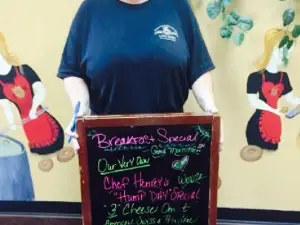 Breakfast Special
Good Morning
Our Very Own
Chef Henry's
"Hump DAY" Special
"3" Cheese Om
American Swiss &